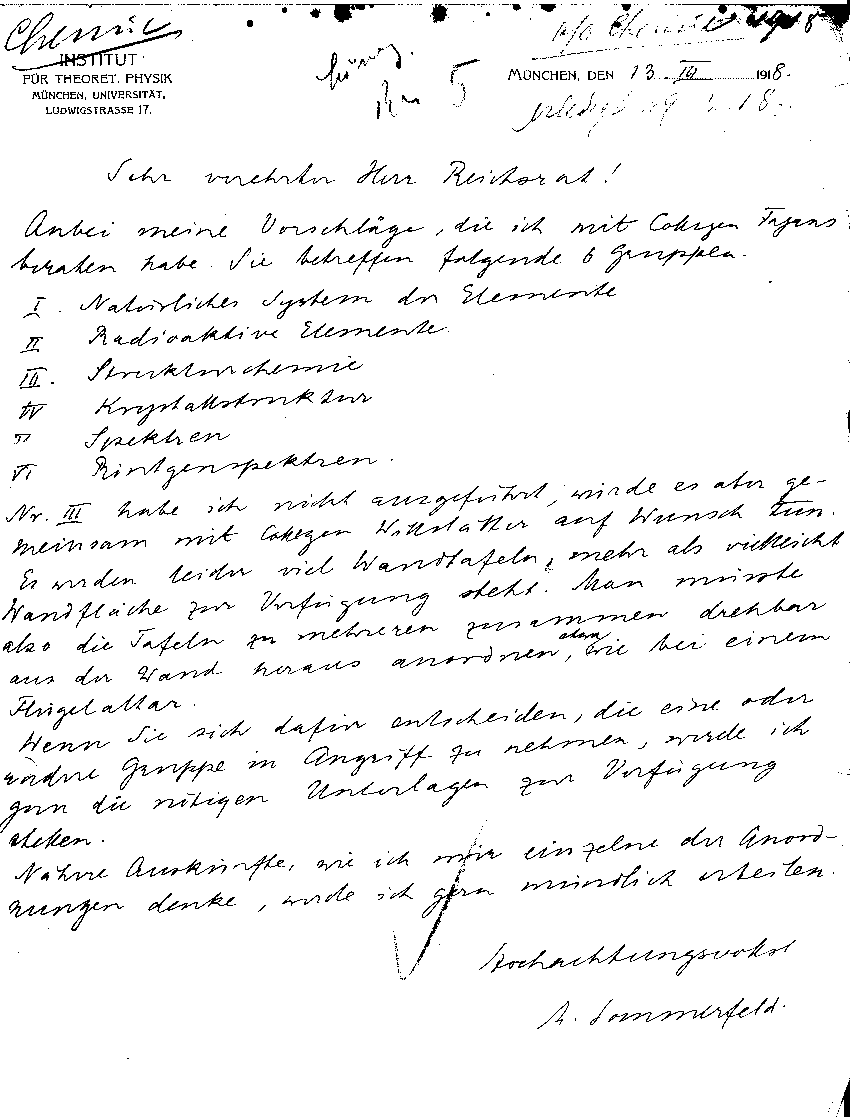 Chemie
INSTITUT
FÜR THEORET. PHYSIK
MÜNCHEN, UNIVERSITÄT,
LUDWIGSTRASSE 17.
5
MÜNCHEN, DEN 13. III 1918.
Sehr verehrter Herr Reichsrat!
Anbei meine Vorschläge, die ich mit Collegen Fajans
beraten habe. Sie betreffen folgende 6 Gruppen.
I. Natürliches System der Elemente
II Radioaktive Elemente.
III. Strukturchemie
IV Krystallstruktur
V Spektren
VI Röntgenspektren.
Nr. III habe ich nicht ausgeführt, würde es aber ge-
meinsam mit Collegen Willstätter auf Wunsch tun.
Es werden leider viel Wandtafeln, mehr als vielleicht
Wandfläche zur Verfügung steht. Man müsste
also die Tafeln zu mehreren zusammen drehbar
aus der Wand heraus anordnen, etwa wie bei einem
Flügelaltar.
Wenn Sie sich dafür entscheiden, die eine oder
andere Gruppe in Angriff zu nehmen, werde ich
gern die nötigen Unterlagen zur Verfügung
stellen.
Nähere Auskünfte, wie ich mir einzelne der Anord-
nungen denke, werde ich gern mündlich erteilen.
Hochachtungsvollst
A. Sommerfeld.